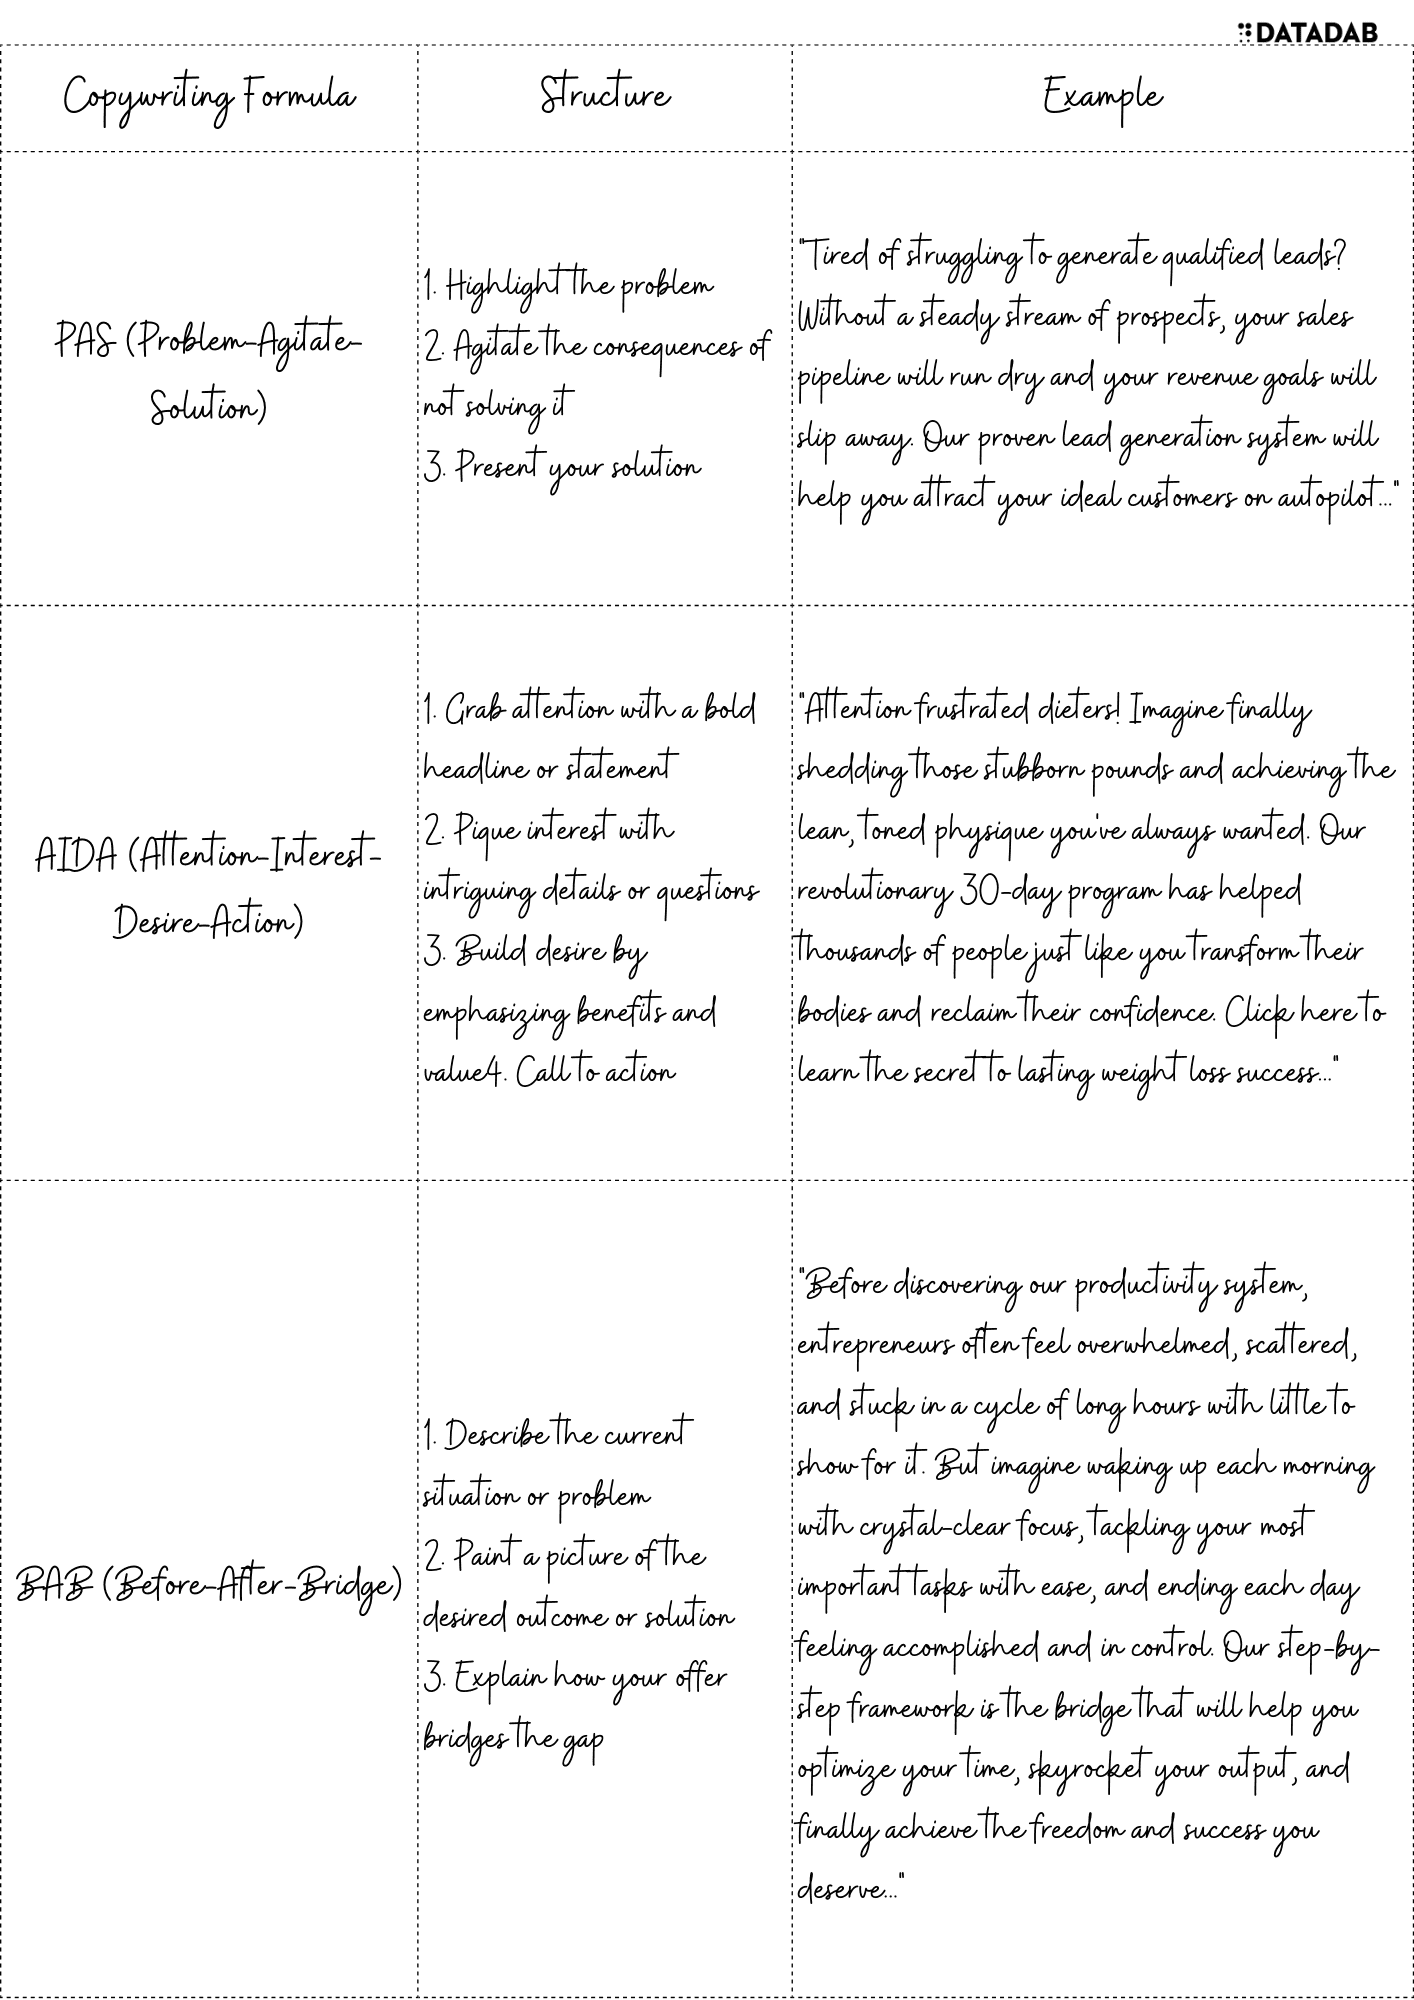 DATADAB
Copywriting Formula
Structure
Example
PAS (Problem-Agitate-
Solution)
1. Highlight the problem
2. Agitate the consequences of
not solving it
3. Present your solution
"Tired of struggling to generate qualified leads?
Without a steady stream of prospects, your sales
pipeline will run dry and your revenue goals will
slip away. Our proven lead generation system will
help you attract your ideal customers on autopilot..."
AIDA (Attention-Interest-
Desire-Action)
1. Grab attention with a bold
headline or statement
2. Pique interest with
intriguing details or questions
3. Build desire by
emphasizing benefits and
value4. Call to action
"Attention frustrated dieters! Imagine finally
shedding those stubborn pounds and achieving the
lean, toned physique you've always wanted. Our
revolutionary 30-day program has helped
thousands of people just like you transform their
bodies and reclaim their confidence. Click here to
learn the secret to lasting weight loss success..."
BAB (Before-After-Bridge)
1. Describe the current
situation or problem
2. Paint a picture of the
desired outcome or solution
3. Explain how your offer
bridges the gap
"Before discovering our productivity system,
entrepreneurs often feel overwhelmed, scattered,
and stuck in a cycle of long hours with little to
show for it. But imagine waking up each morning
with crystal-clear focus, tackling your most
important tasks with ease, and ending each day
feeling accomplished and in control. Our step-by-
step framework is the bridge that will help you
optimize your time, skyrocket your output, and
finally achieve the freedom and success you
deserve..."